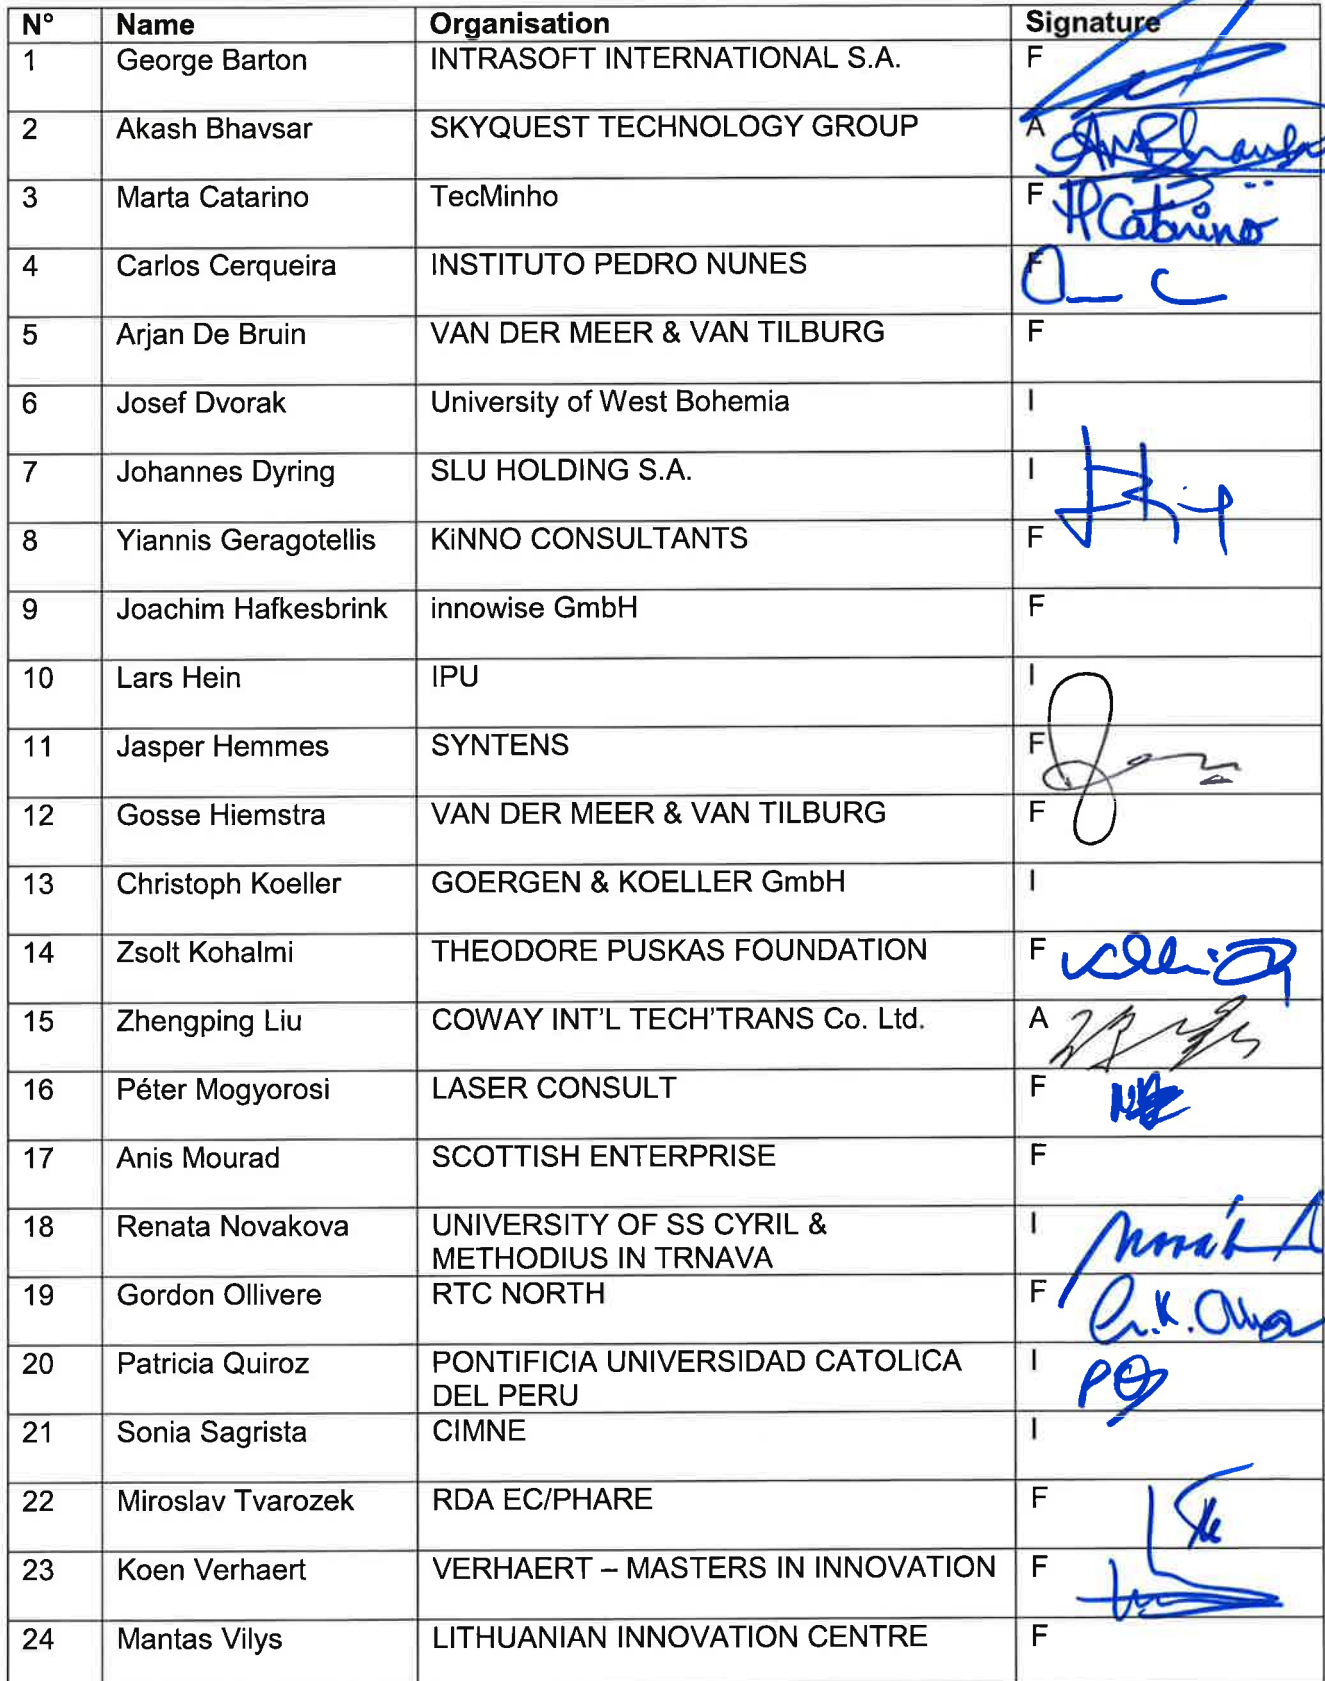 N° Name Organisation Signature
1 George Barton INTRASOFT INTERNATIONAL S.A. F
2 Akash Bhavsar SKYQUEST TECHNOLOGY GROUP A
3 Marta Catarino TecMinho F MCatarino
4 Carlos Cerqueira INSTITUTO PEDRO NUNES F
5 Arjan De Bruin VAN DER MEER & VAN TILBURG F
6 Josef Dvorak University of West Bohemia I
7 Johannes Dyring SLU HOLDING S.A. I
8 Yiannis Geragotellis KiNNO CONSULTANTS F
9 Joachim Hafkesbrink innowise GmbH F
10 Lars Hein IPU I
11 Jasper Hemmes SYNTENS F
12 Gosse Hiemstra VAN DER MEER & VAN TILBURG F
13 Christoph Koeller GOERGEN & KOELLER GmbH I
14 Zsolt Kohalmi THEODORE PUSKAS FOUNDATION F
15 Zhengping Liu COWAY INT'L TECH'TRANS Co. Ltd. A
16 Péter Mogyorosi LASER CONSULT F
17 Anis Mourad SCOTTISH ENTERPRISE F
18 Renata Novakova UNIVERSITY OF SS CYRIL & I
METHODIUS IN TRNAVA
19 Gordon Ollivere RTC NORTH F
20 Patricia Quiroz PONTIFICIA UNIVERSIDAD CATOLICA I
DEL PERU
21 Sonia Sagrista CIMNE I
22 Miroslav Tvarozek RDA EC/PHARE F
23 Koen Verhaert VERHAERT – MASTERS IN INNOVATION F
24 Mantas Vilys LITHUANIAN INNOVATION CENTRE F